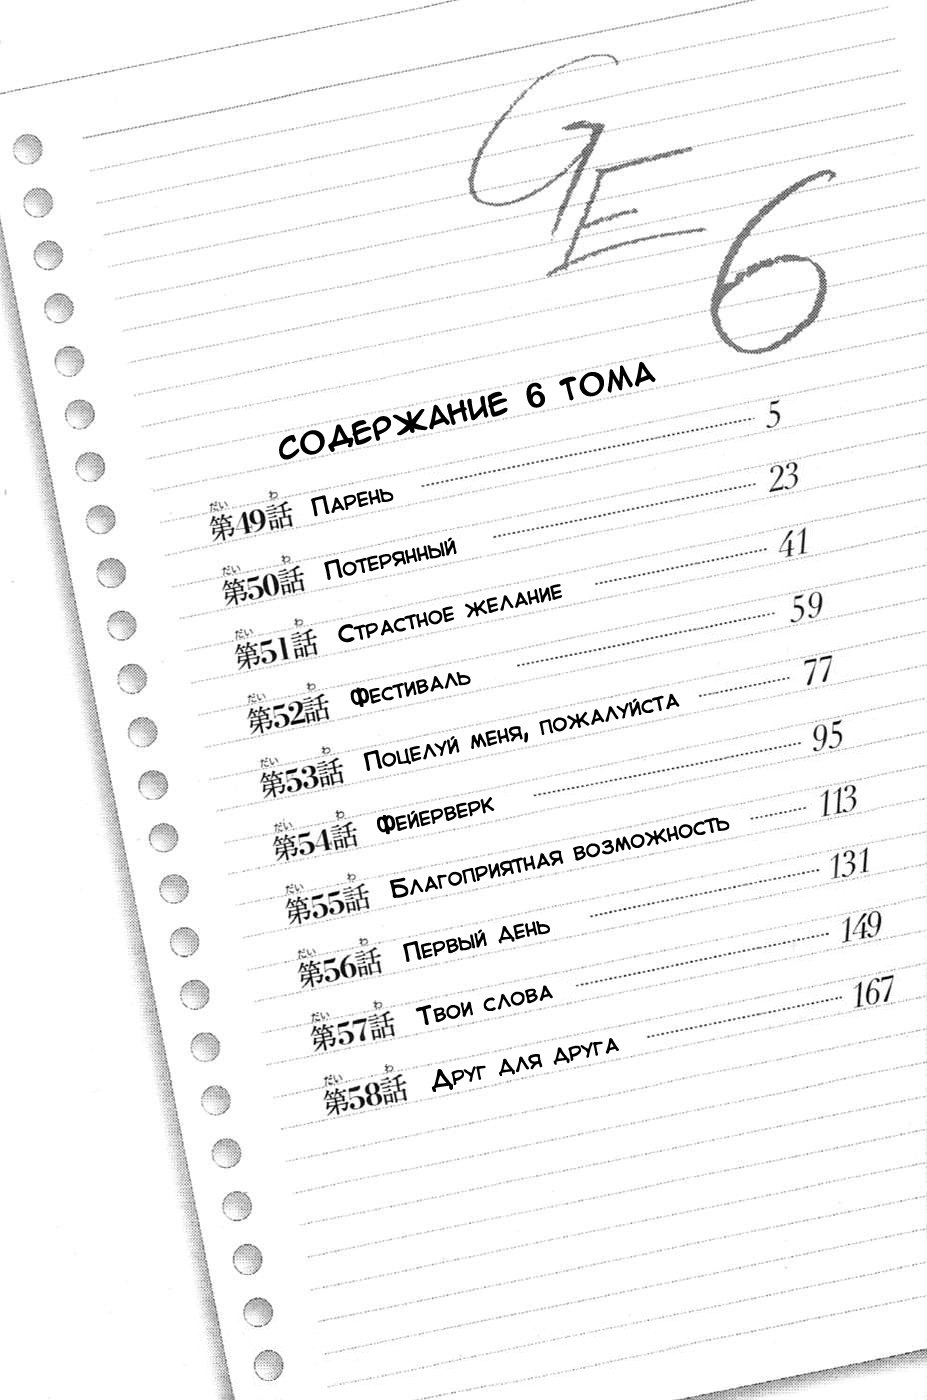 GE
6
СОДЕРЖАНИЕ 6 ТОМА
第49話 ПАРЕНЬ 5
第50話 ПОТЕРЯННЫЙ 23
第51話 СТРАСТНОЕ ЖЕЛАНИЕ 41
第52話 ФЕСТИВАЛЬ 59
第53話 ПОЦЕЛУЙ МЕНЯ, ПОЖАЛУЙСТА 77
第54話 ФЕЙЕРВЕРК 95
第55話 БЛАГОПРИЯТНАЯ ВОЗМОЖНОСТЬ 113
第56話 ПЕРВЫЙ ДЕНЬ 131
第57話 ТВОИ СЛОВА 149
第58話 ДРУГ ДЛЯ ДРУГА 167